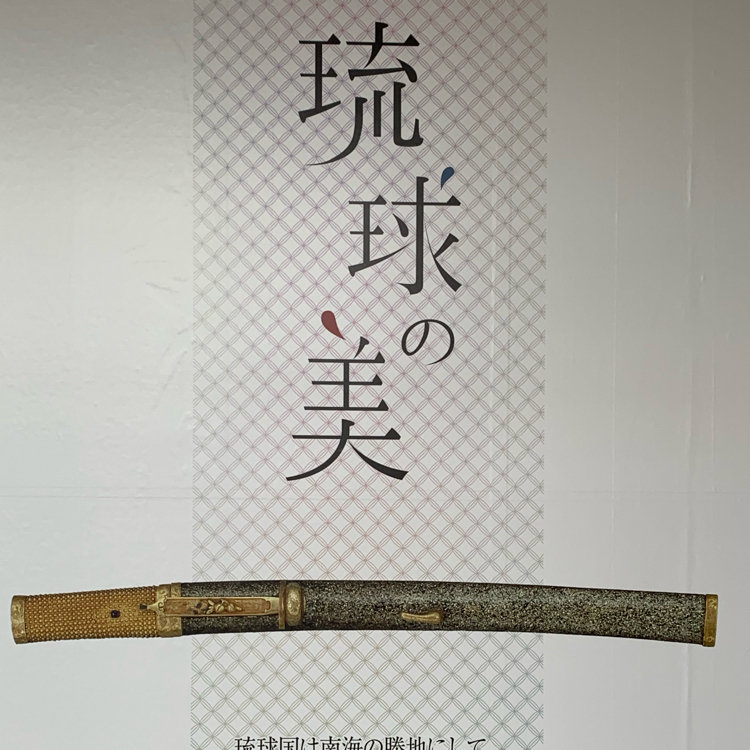 琉球の美
琉球国は南海の勝地にして